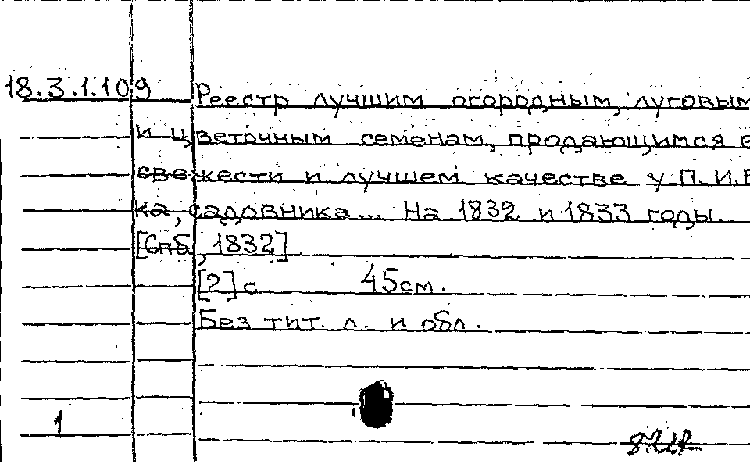 18.3.1.109 Реестр лучшим огородным, луговым
и цветочным семенам, продающимся в
свежести и лучшем качестве у П.И.
ка, садовника... На 1832 и 1833 годы.
[Спб, 1832]
[2] с 45см.
Без тит. л. и обл.
1